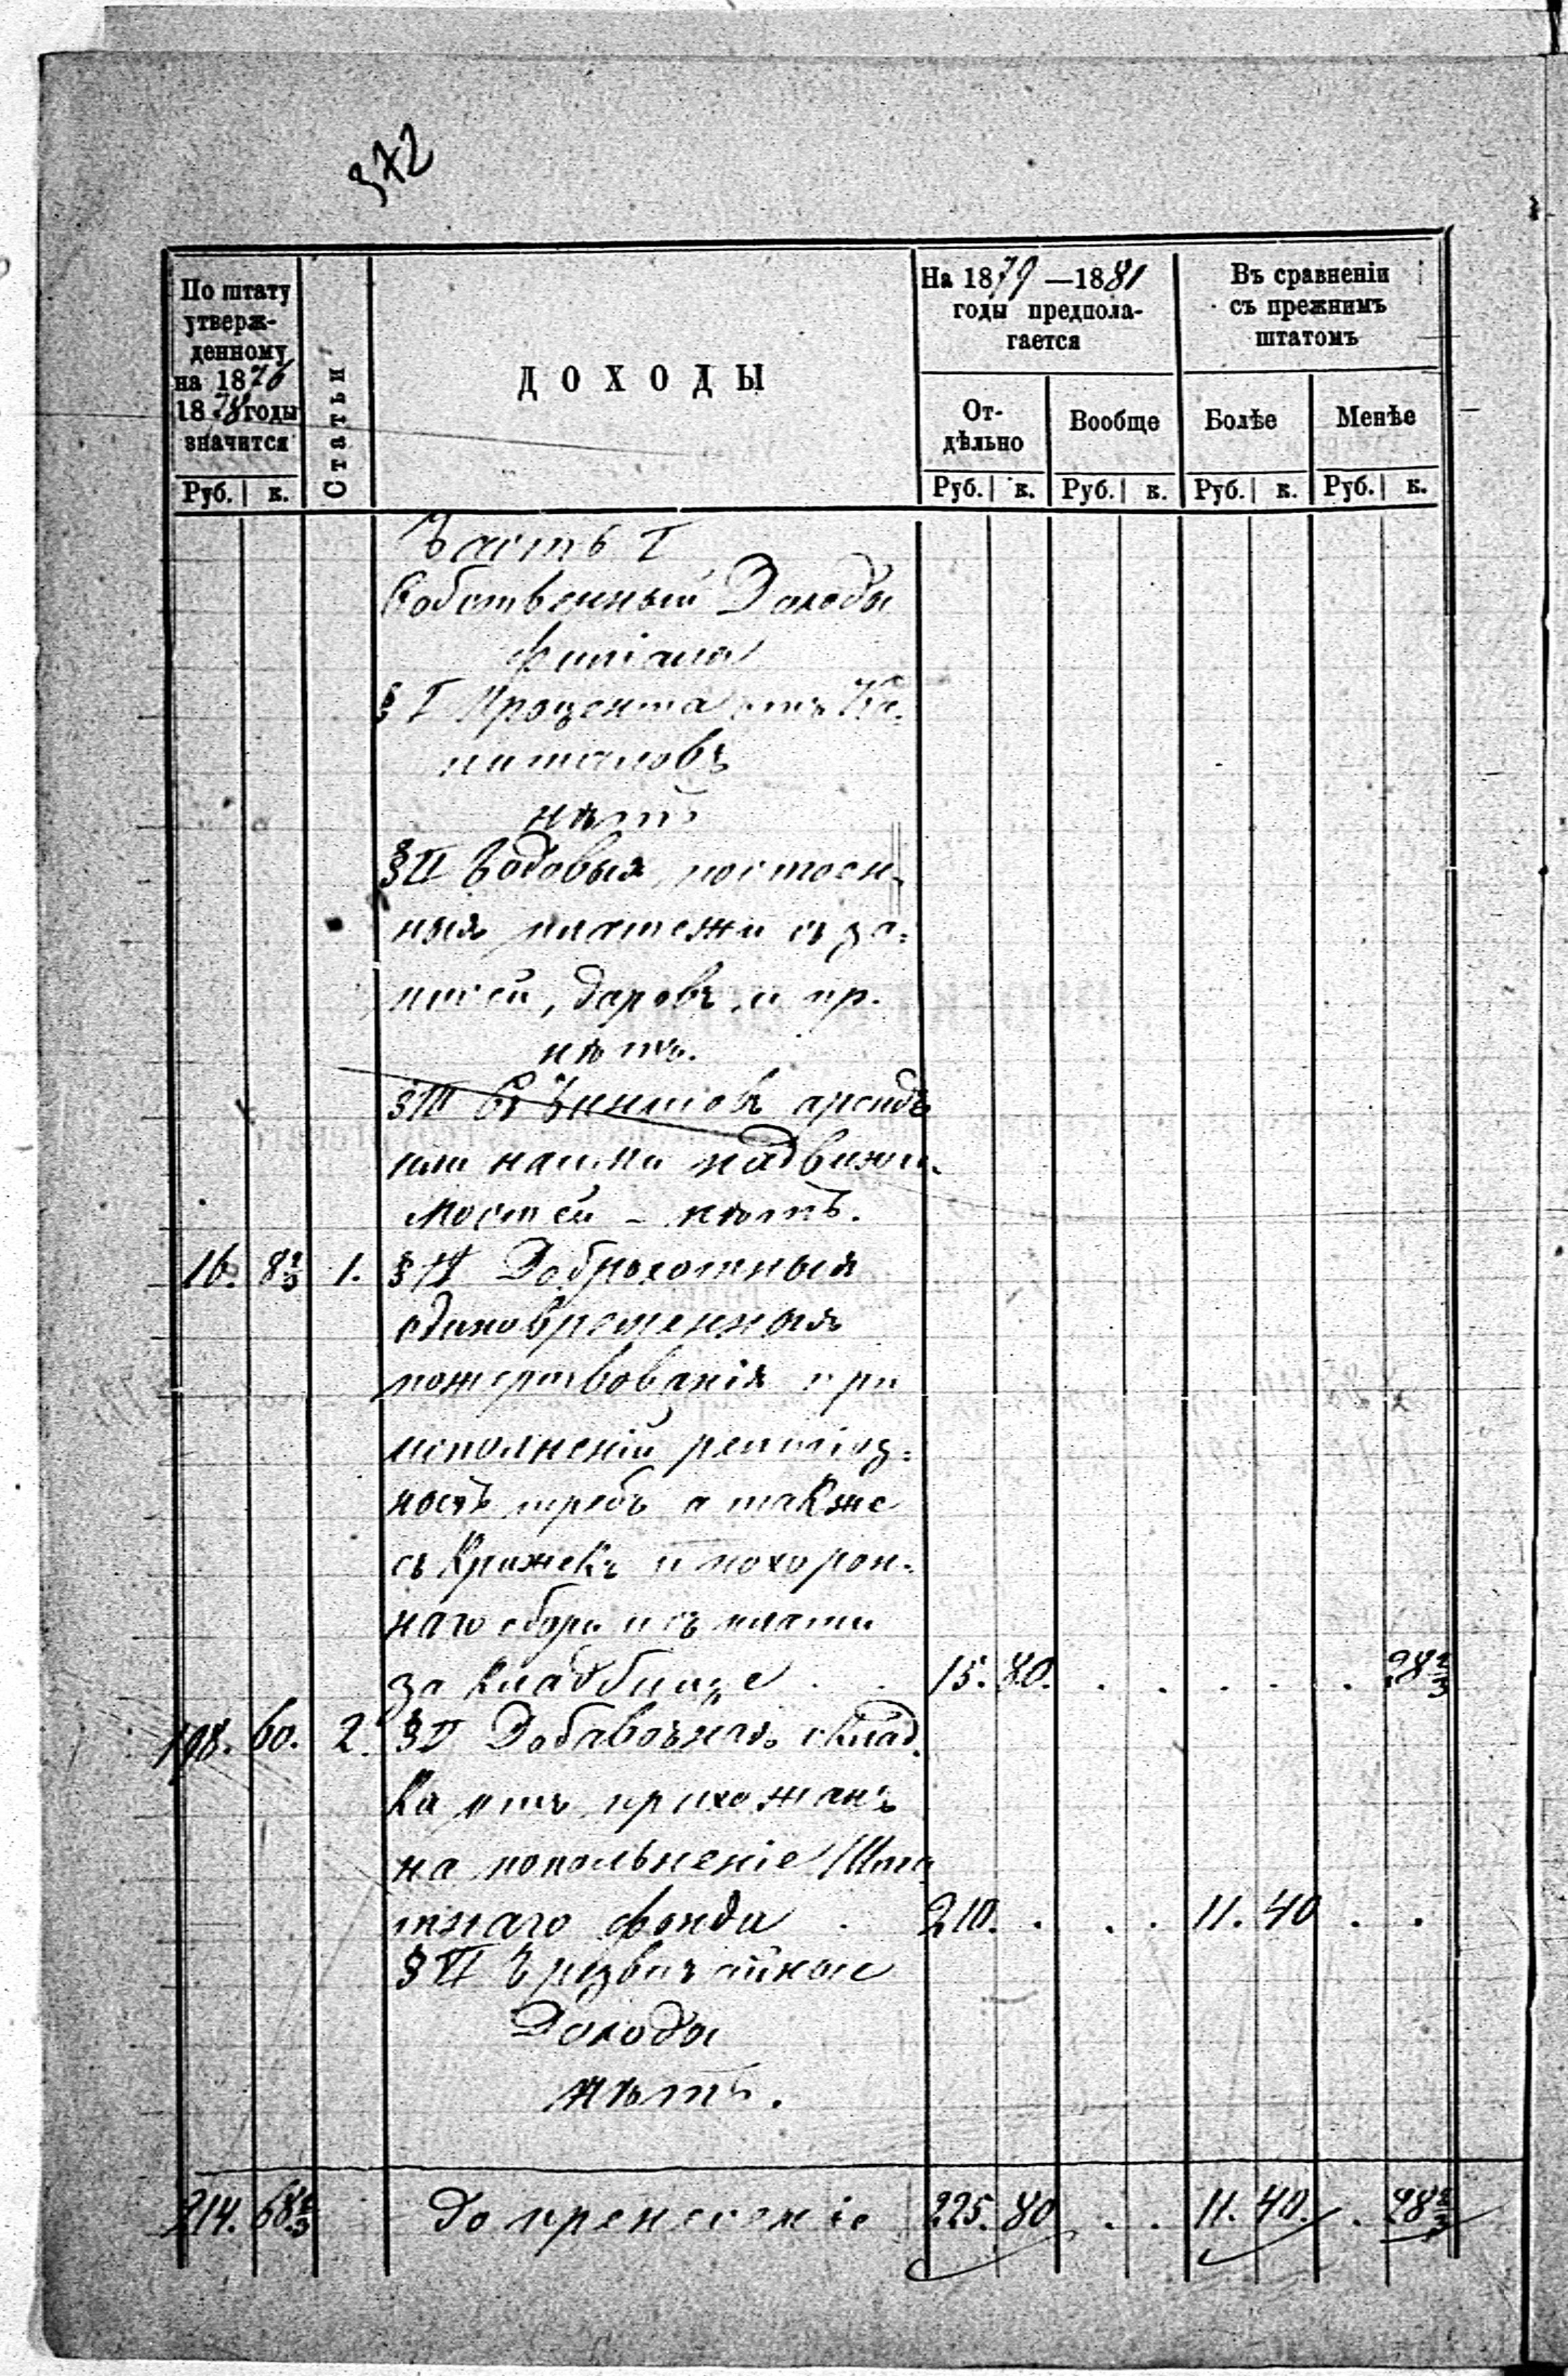 372
По штату
утверж-
денному
на 1876
1878 годы
значится
Статьи
ДОХОДЫ
На 1879 —1881
годы предпола-
гается
Въ сравненіи
съ прежнимъ
штатомъ
От-
дѣльно
Вообще
Болѣе
Менѣе
Руб. к. Руб. к. Руб. к. Руб. к. Руб. к.
Часть I
Собственный Доходы
филіала
§ I Процента отъ Ка-
питаловъ
нѣтъ
§ II Годовыя постоен-
ныя платежи съ за-
писей, даровъ и пр.
нѣтъ.
§ III Съ Чиншовъ арендъ
или найми надвижи-
мостей - нѣтъ.
16. 8 2/3 1. § IV Доброхотныя
единовременныя
пожертвованія при
исполненій религіоз-
ныхъ требъ а также
съ Кружекъ и похорон-
наго сбора и съ платы
за кладбище . . 15. 80. . . . . . 28 2/3
198. 60. 2. § V Добавочнаго склад-
ка отъ прихожанъ
на пополненіе Шта
тнаго фонда . 210. . . . 11. 40 . .
§ VI Чрезвычайные
Доходы
нѣтъ.
214. 68 2/3 До пренесеніе 225. 80 . . 11. 40. . 28 2/3